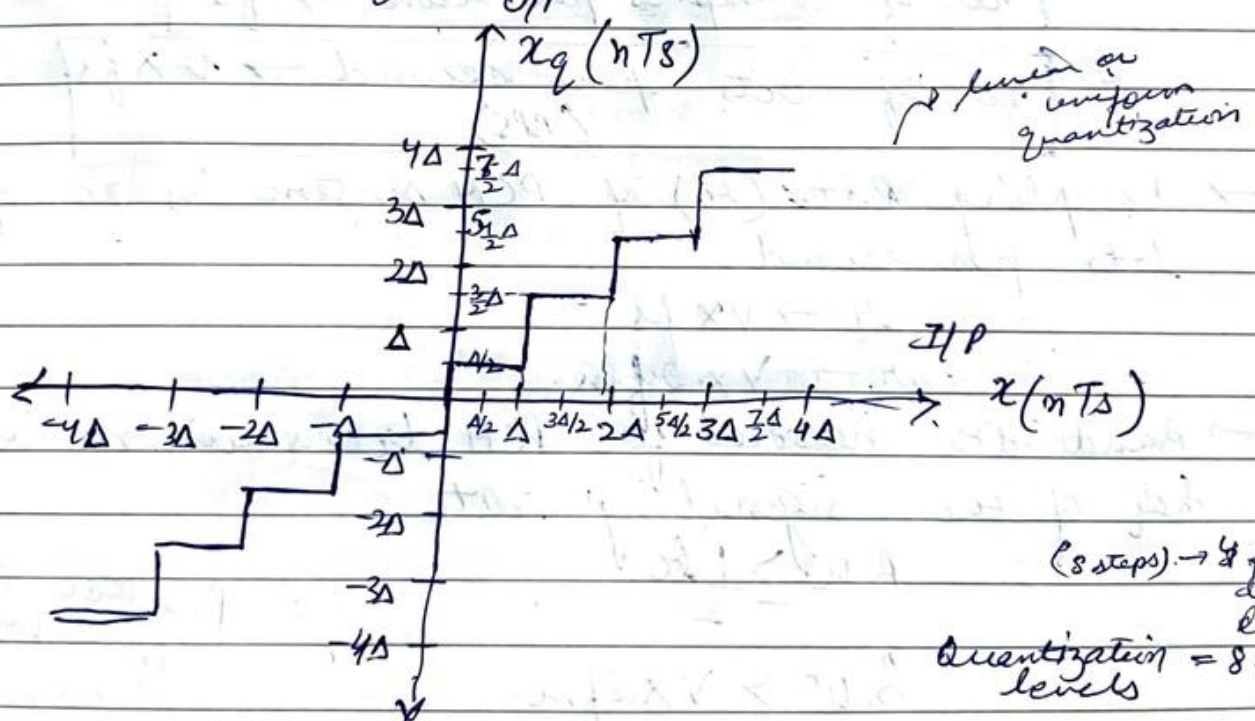 O/P
xq (nTs)
linear or
uniform
quantization
4Δ
7/2 Δ
3Δ
5/2 Δ
2Δ
3/2 Δ
Δ
Δ/2
I/P
x(nTs)
-4Δ -3Δ -2Δ -Δ Δ/2 Δ 3Δ/2 2Δ 5Δ/2 3Δ 7/2 Δ 4Δ
-Δ
-2Δ
-3Δ
-4Δ
(8 steps) →
Quantization = 8
levels